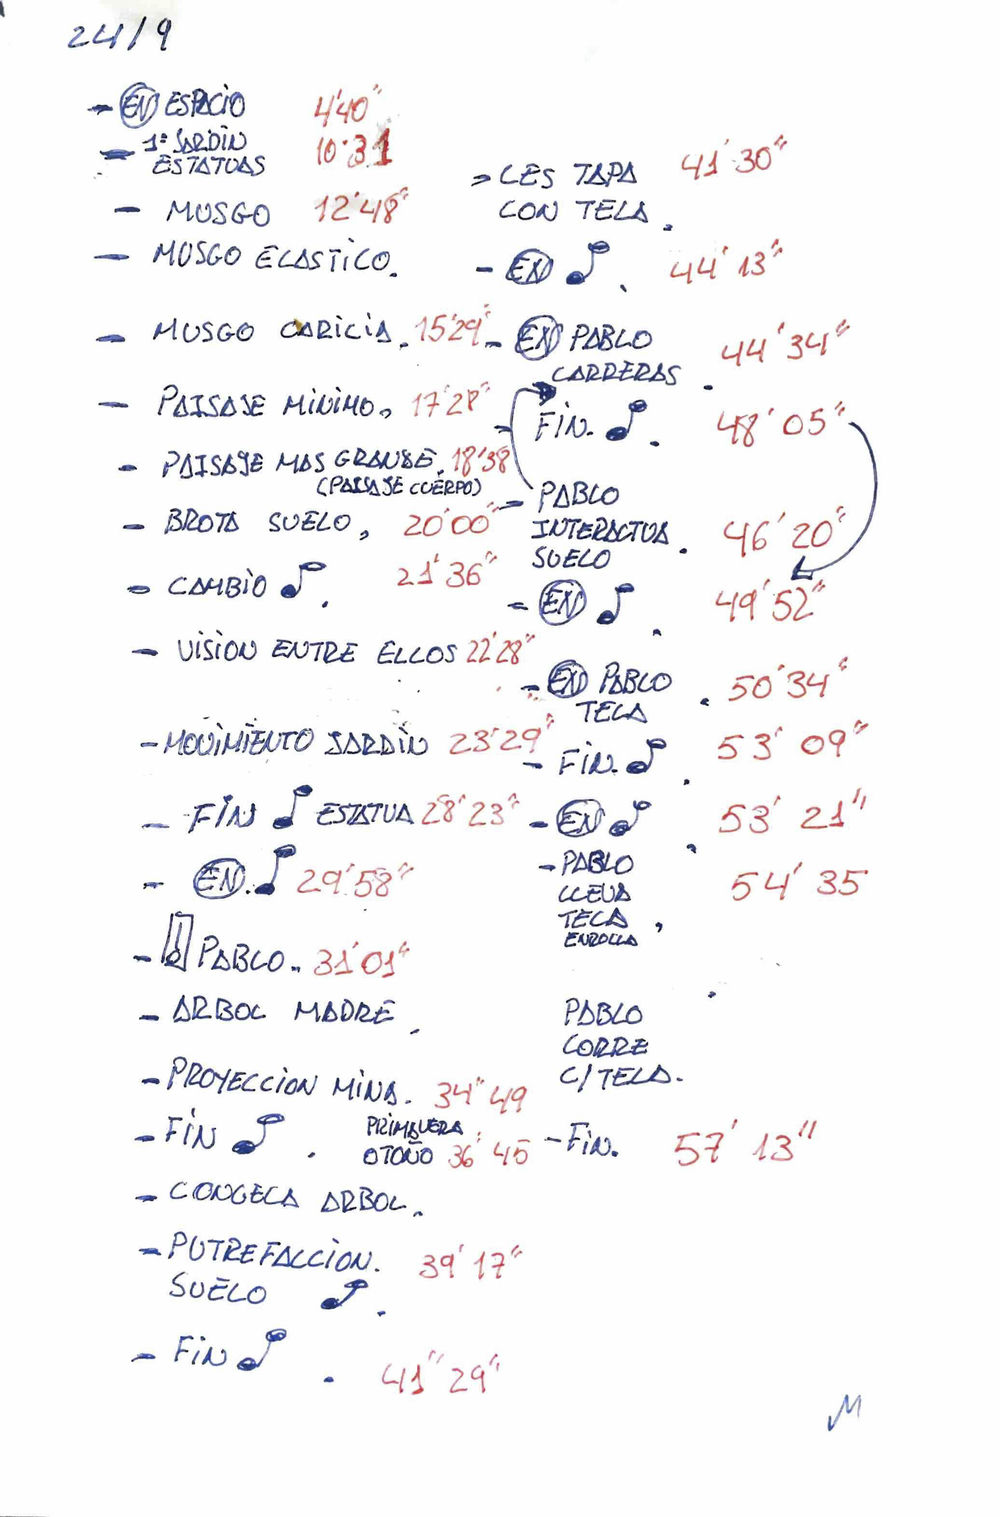 24/9
- EN ESPACIO 4'40"
- 1º JARDIN 10'31
ESTATUAS
- MUSGO 12'48"
- MUSGO ELASTICO.
- MUSGO CARICIA. 15'29"
- PAISAJE MINIMO. 17'28"
- PAISAJE MAS GRANDE. 18'38
(PAISAJE CUERPO)
- BROTA SUELO, 20'00"
- CAMBIO ♪. 21'36"
- VISION ENTRE ELLOS 22'28"
- MOVIMIENTO JARDIN 23'29"
- FIN ♪ ESTATUA 28'23"
- EN. ♪ 29'58"
- PABLO. 31'01"
- ARBOL MADRE.
- PROYECCION MINA. 34"49
- FIN ♪. PRIMAVERA
OTOÑO 36'45
- CONGELA ARBOL.
- PUTREFACCION. 39'17"
SUELO ♪.
- FIN ♪. 41"29"
- LES TAPA 41'30"
CON TELA.
- EN ♪. 44'13"
- EN PABLO 44'34"
CARRERAS.
- FIN. ♪. 48'05"
- PABLO
INTERACTUA. 46'20"
SUELO
- EN ♪. 49'52"
- EN PABLO. 50'34"
TELA
- FIN. ♪. 53'09"
- EN ♪. 53'21"
- PABLO 54'35
LLEVA
TELA,
ENROLLA
PABLO
CORRE
C/TELA.
- FIN. 57'13"
M